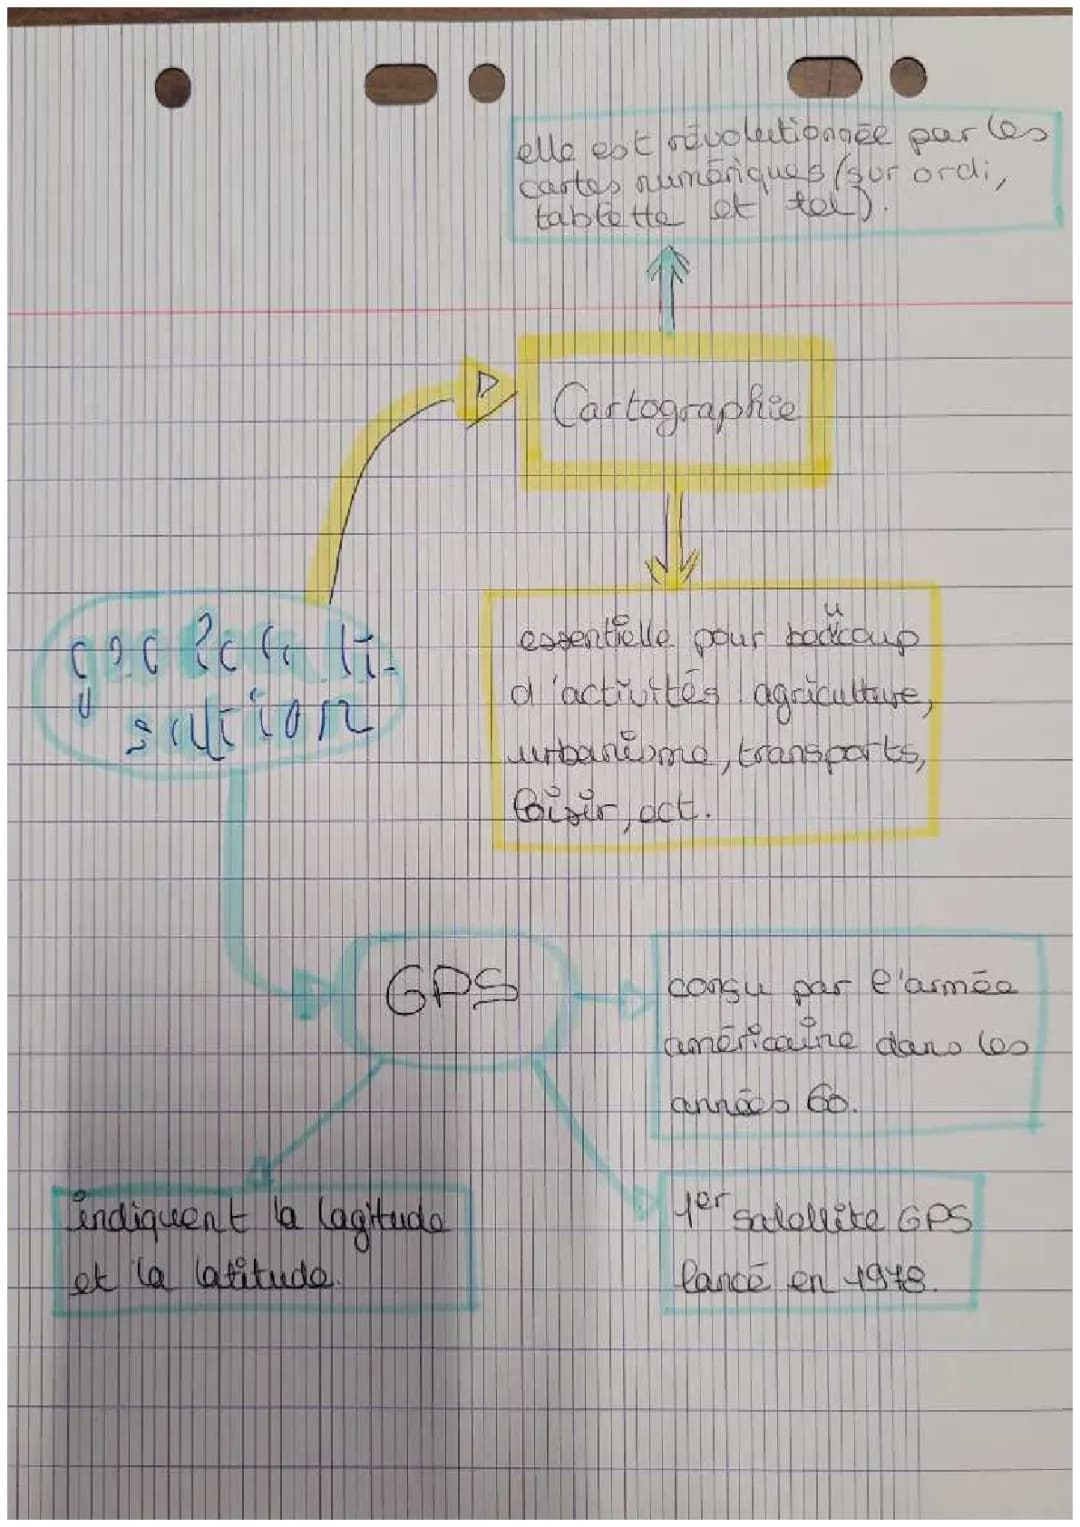 elle est révolutionnée par les
cartes numériques (sur ordi,
tablette et tel).
Cartographie
essentielle pour beaucoup
d'activités agriculture,
urbanisme, transports,
loisir, ect.
géolocali-
sation
GPS
consu par l'armée
américaine dans les
années 60.
indiquent la lagitude
et la latitude.
1er satellite GPS
lancé en 1978.